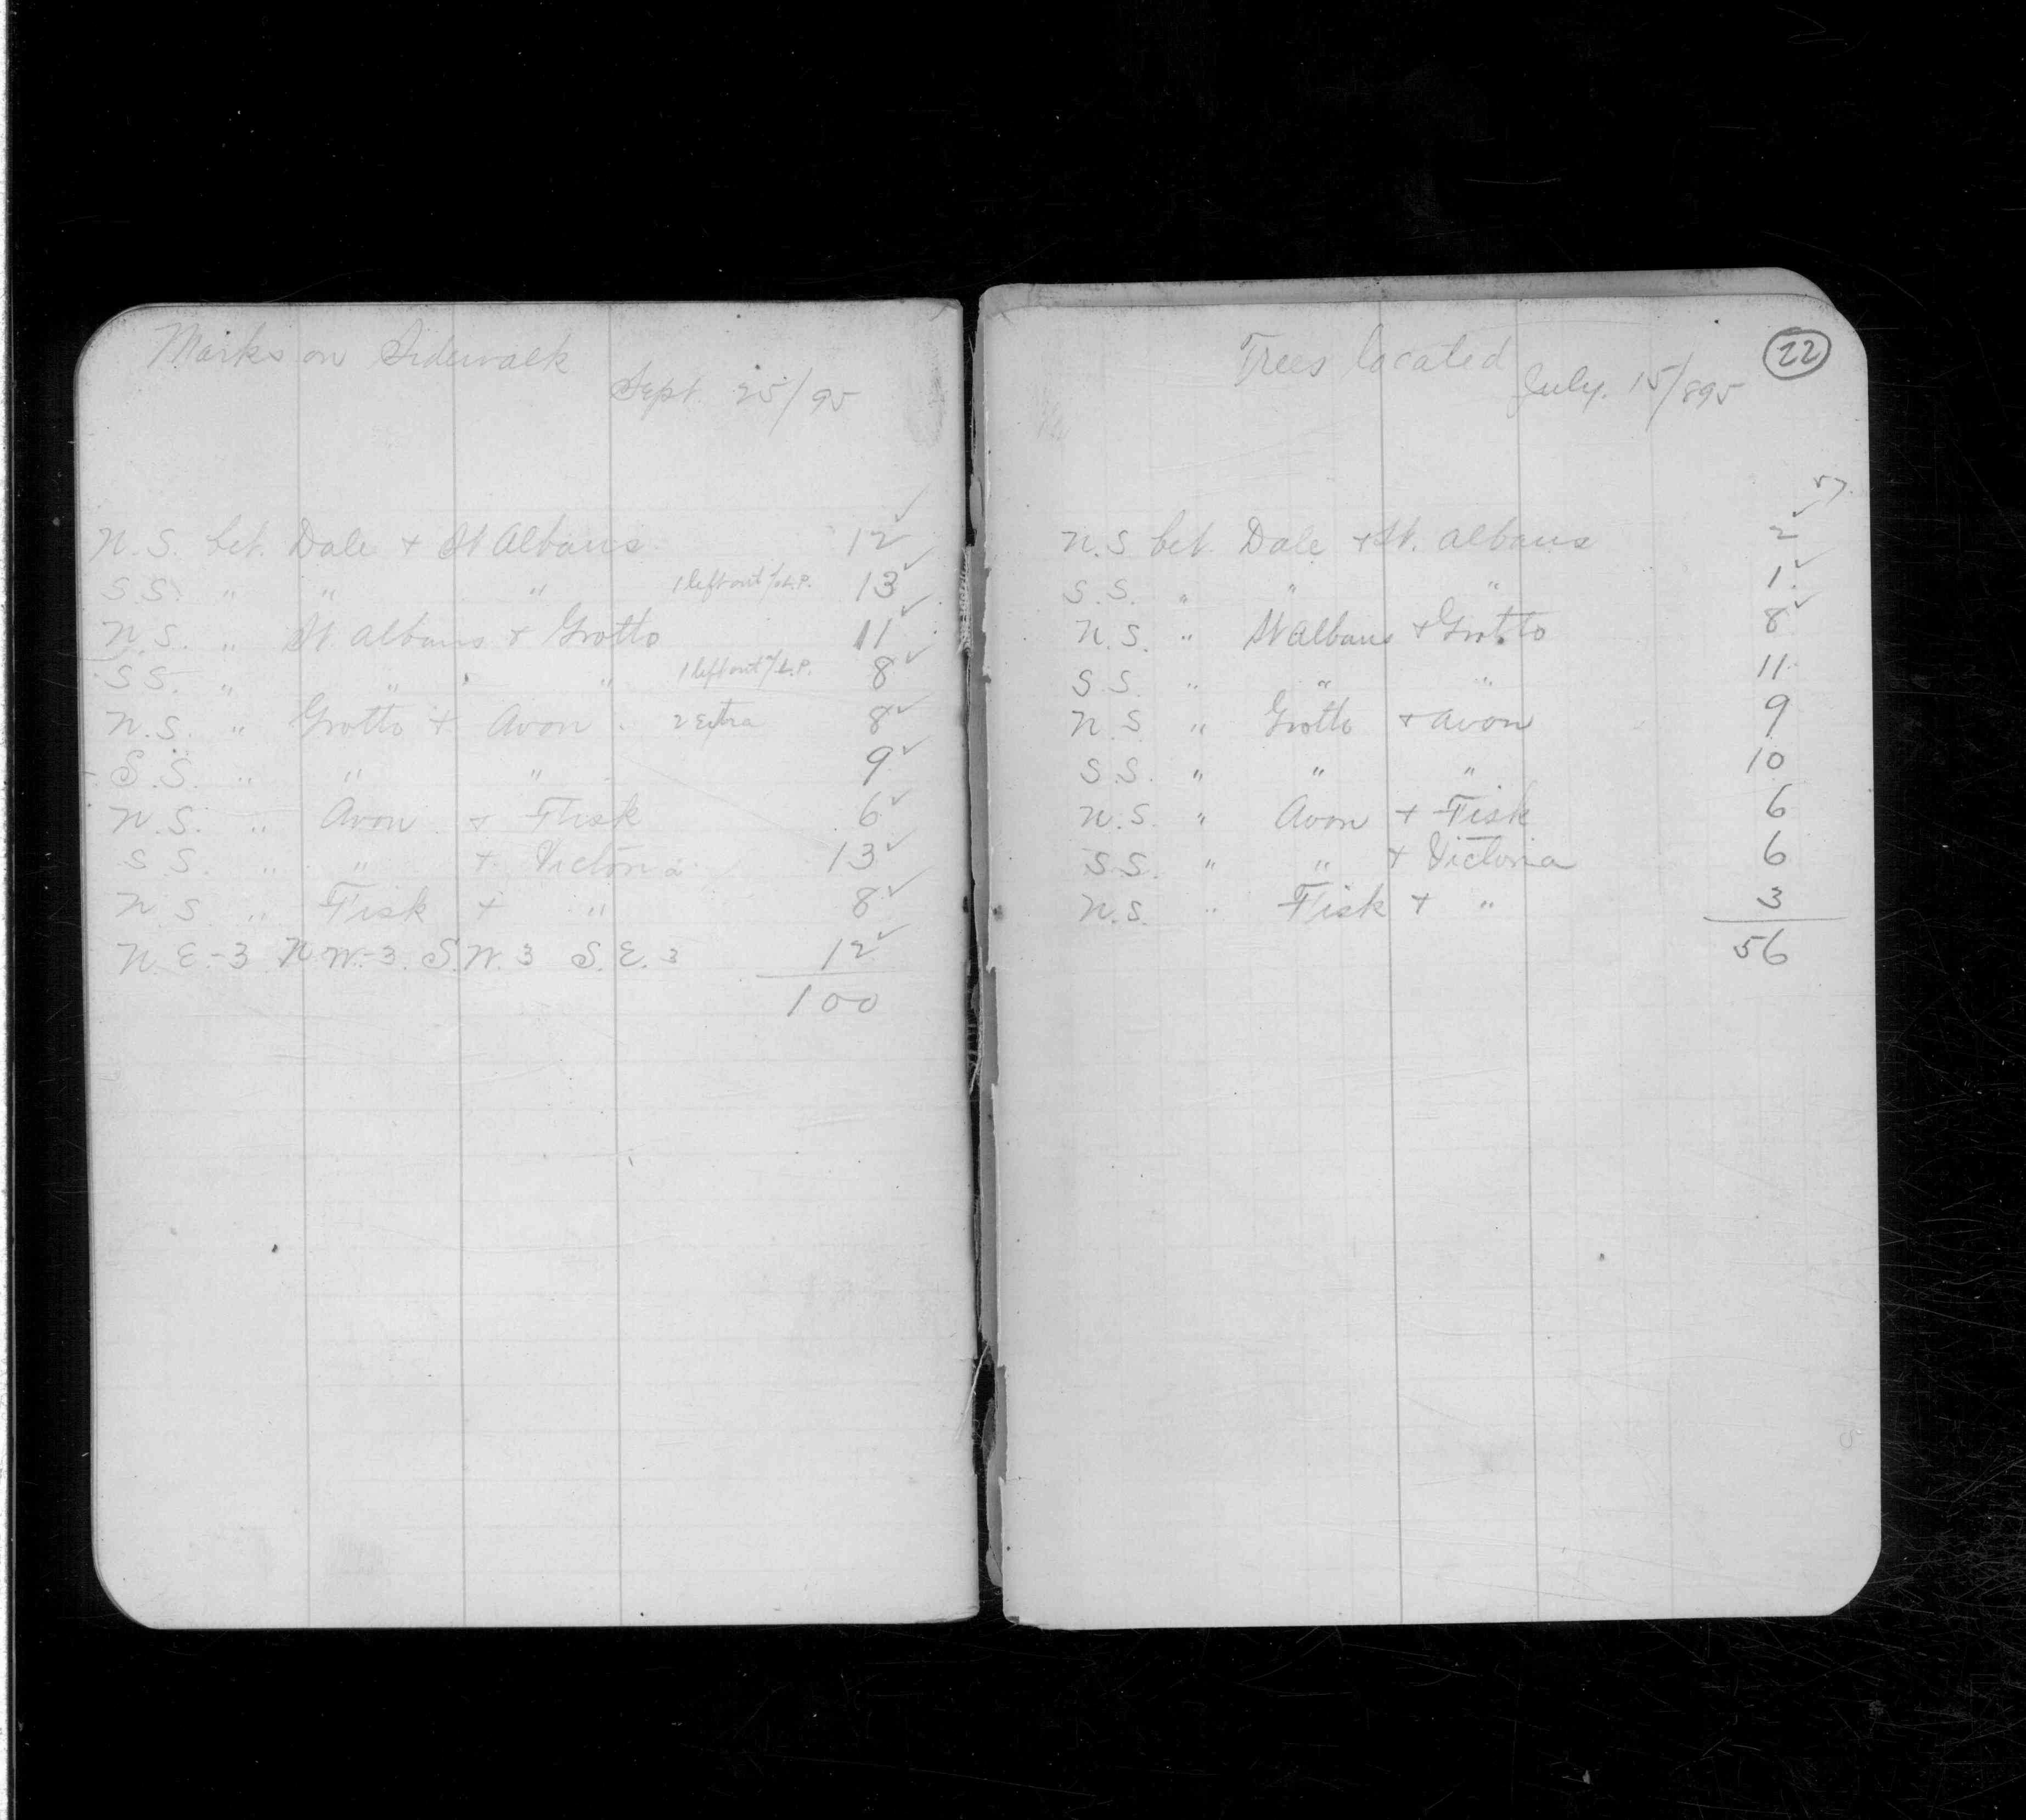 Marks on Sidewalk
Sept. 25/95
N.S. bet. Dale + St Albans 12 ✓
S.S. " " " 1 left out a/c L.P. 13 ✓
N.S. " St Albans + Grotto 11 ✓
S.S. " " " 1 left out a/c L.P. 8 ✓
N.S. " Grotto + Avon. 2 Extra 8 ✓
S.S. " " " 9 ✓
N.S. " Avon + Fisk 6 ✓
S.S. " " + Victoria 13 ✓
N.S. " Fisk + " 8 ✓
N.E-3 N.W-3. S.W.3 S.E.3 12 ✓
100
22
Trees located
July. 15/895
57.
N.S bet. Dale + St. Albans 2 ✓
S.S. " " " 1 ✓
N.S. " St Albans + Grotto 8 ✓
S.S. " " " 11
N.S " Grotto + Avon 9
S.S. " " " 10
N.S. " Avon + Fisk 6
S.S. " " + Victoria 6
N.S. " Fisk + " 3
56